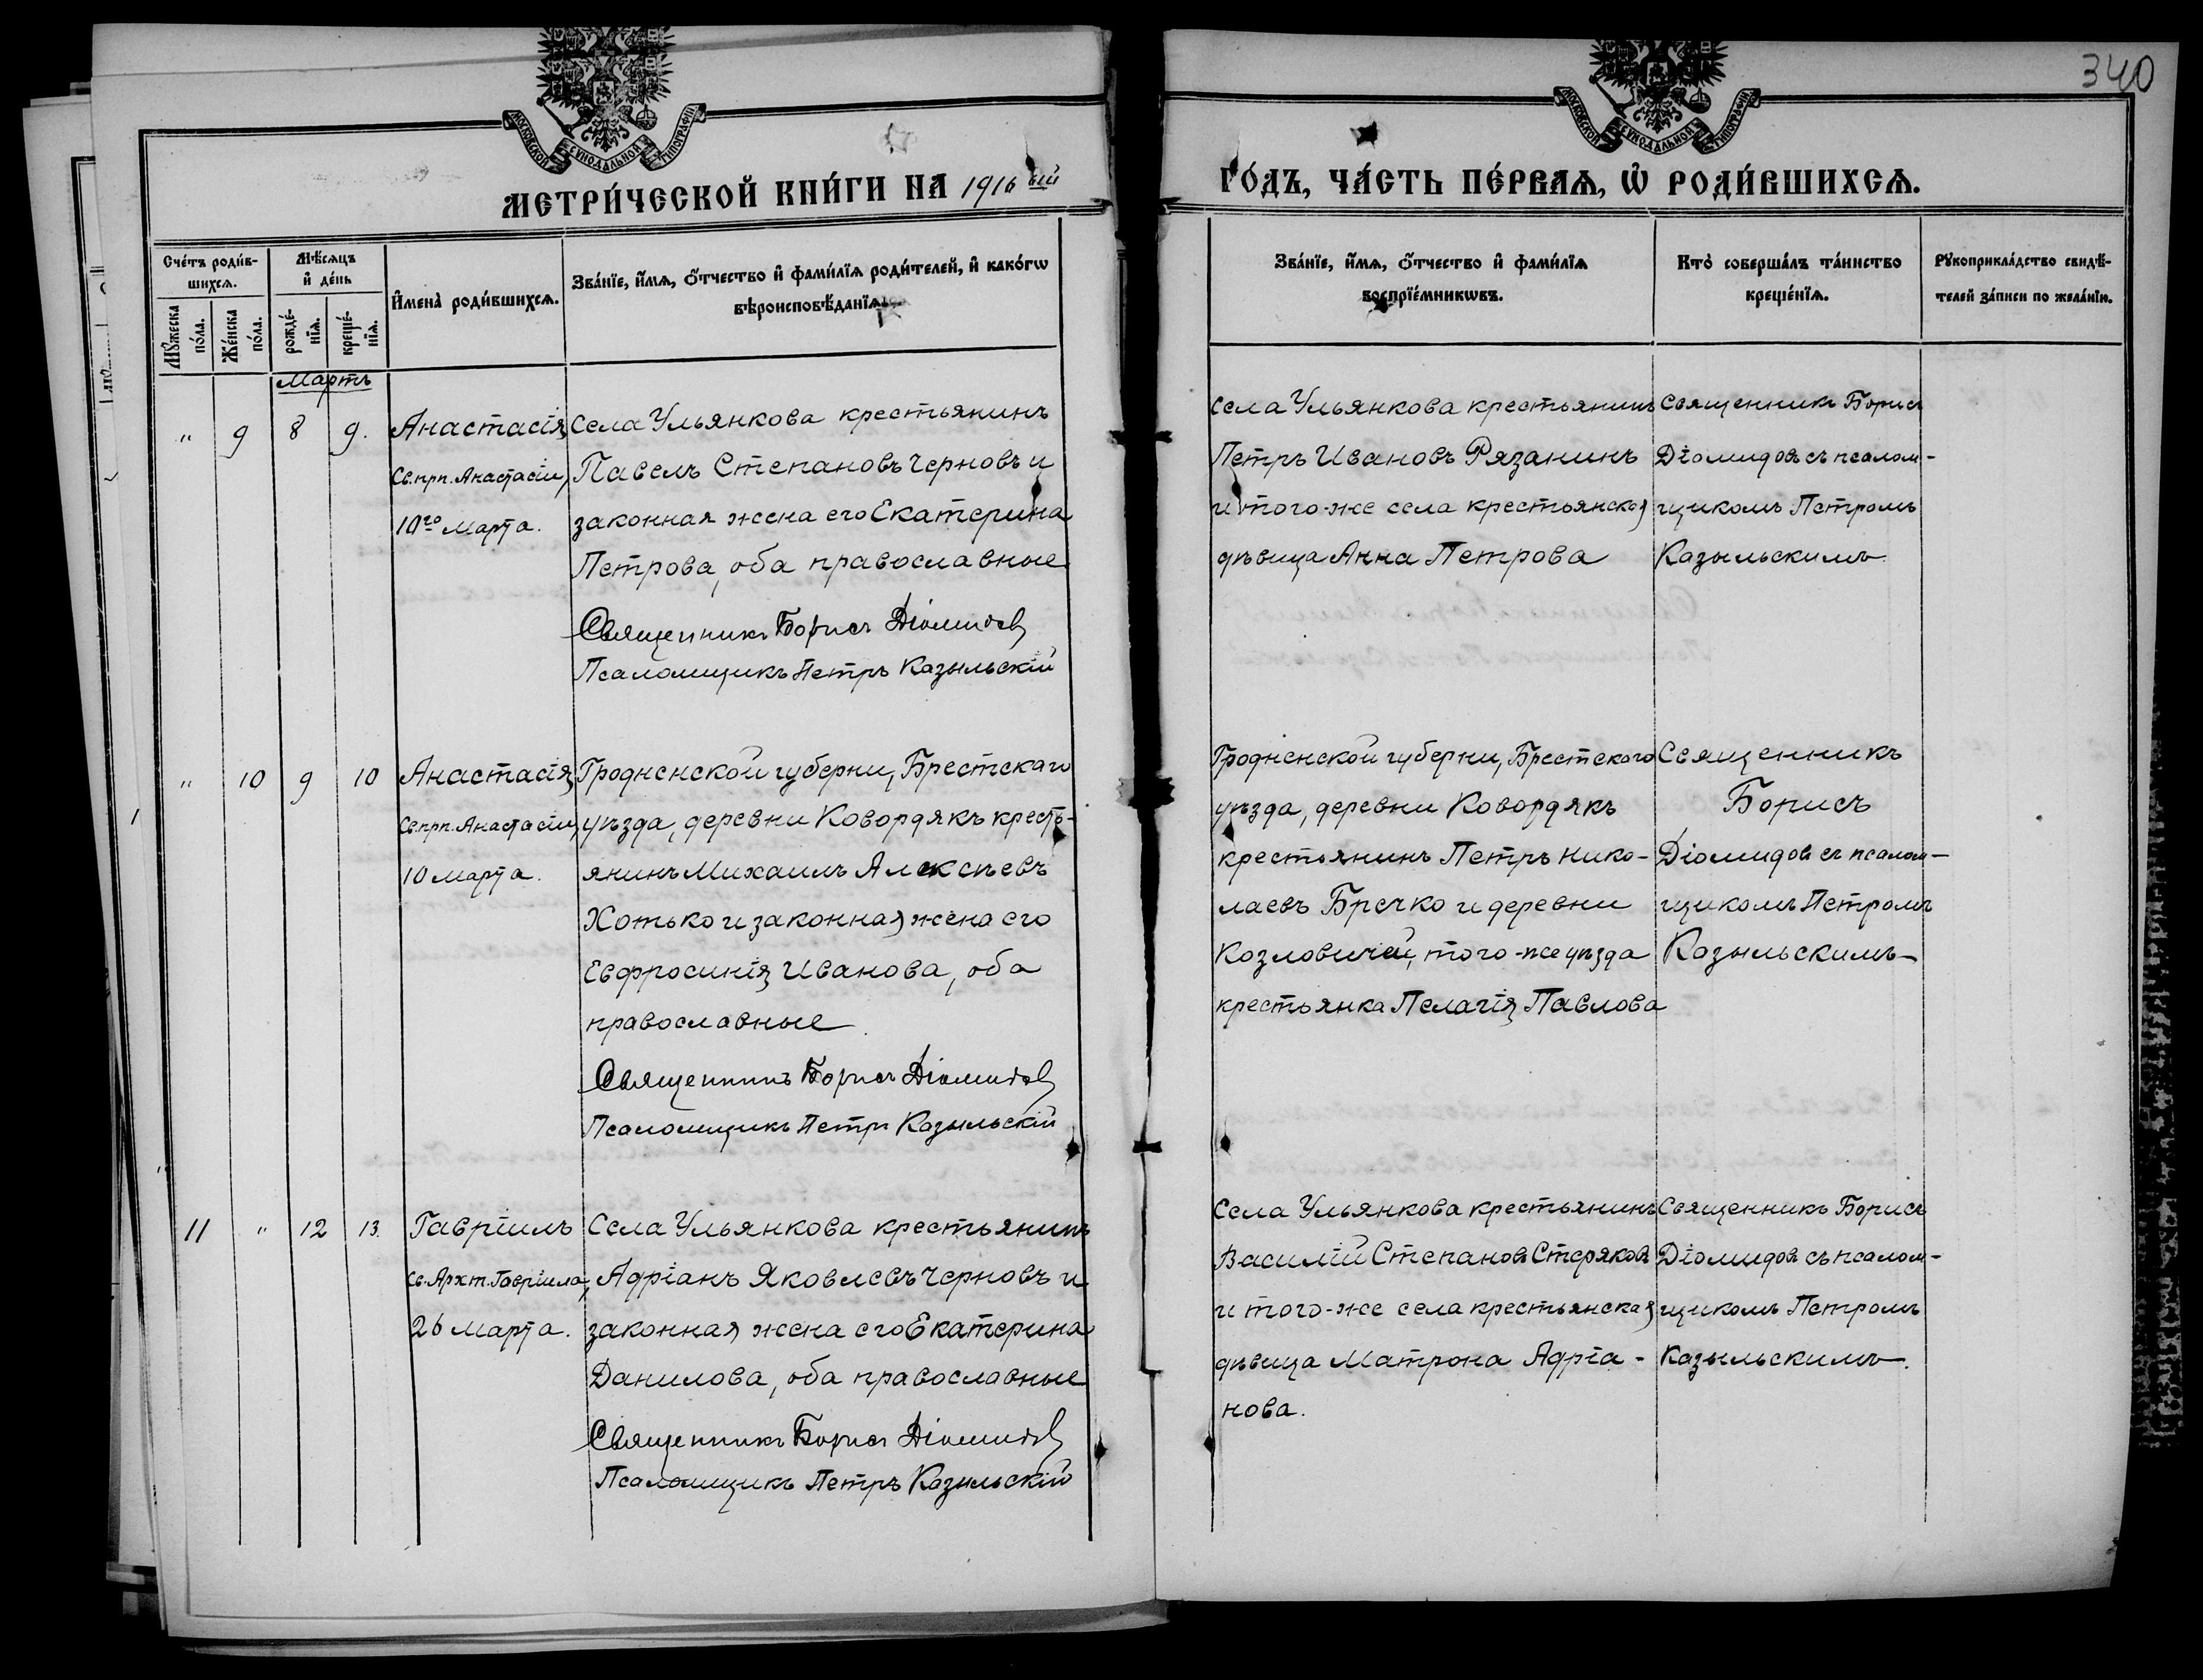 340
МОСКОВСКОЙ СѴНОДАЛЬНОЙ ТИПОГРАФІИ
МОСКОВСКОЙ СѴНОДАЛЬНОЙ ТИПОГРАФІИ
МЕТРИ́ЧЕСКОЙ КНИ́ГИ НА 1916 ый
ГО́ДЪ, ЧА́СТЬ ПЕ́РВАѦ, Ѡ҆ РОДИ́ВШИХСѦ.
Сче́тъ роди́в-
шихсѧ.
Мꙋ́жеска
по́ла.
Же́нска
по́ла.
Мѣ́сѧцъ
и҆ де́нь
рожде́-
нїѧ.
креще́-
нїѧ.
И҆мена̀ роди́вшихсѧ.
Зва́нїе, и҆́мѧ, ѻ҆́тчество и҆ фами́лїѧ роди́телей, и҆ како́гѡ
вѣроисповѣ́данїѧ.
Зва́нїе, и҆́мѧ, ѻ҆́тчество и҆ фами́лїѧ
воспрїе́мникѡвъ.
Кто̀ соверша́лъ та́инство
креще́нїѧ.
Рꙋкоприкла́дство свидѣ́-
телей за́писи по жела́нїю.
Мартъ
" 9 8 9.
Анастасія
Св. прп. Анастасіи,
10го марта.
Села Ульянкова крестьянинъ
Павелъ Степановъ Черновъ и
законная жена его Екатерина
Петрова, оба православные
Священникъ Борисъ Діомидовъ
Псаломщикъ Петръ Казыльскій
Села Ульянкова крестьянинъ
Петръ Ивановъ Рязанинъ
и того-же села крестьянская
дѣвица Анна Петрова
Священникъ Борисъ
Діомидовъ съ псалом-
щикомъ Петромъ
Казыльскимъ.
" 10 9 10
Анастасія
Св. прп. Анастасіи,
10 марта.
Гродненской губерни, Брестскаго
уѣзда, деревни Ковордякъ кресть-
янинъ Михаилъ Алексѣевъ
Хотько и законная жена его
Евфросинія Иванова, оба
православные.
Священникъ Борисъ Діомидовъ
Псаломщикъ Петръ Казыльскій
Гродненской губерни, Брестскаго
уѣзда, деревни Ковордякъ
крестьянинъ Петръ Нико-
лаевъ Бречко и деревни
Козловичей, того-же уѣзда
крестьянка Пелагія Павлова
Священникъ
Борисъ
Діомидовъ съ псалом-
щикомъ Петромъ
Казыльскимъ
11 " 12 13.
Гавріилъ
Св. Архт. Гавріила,
26 марта.
Села Ульянкова крестьянинъ
Адріанъ Яковлевъ Черновъ и
законная жена его Екатерина
Данилова, оба православные
Священникъ Борисъ Діомидовъ
Псаломщикъ Петръ Казыльскій
Села Ульянкова крестьянинъ
Василій Степановъ Стеряковъ
и того-же села крестьянская
дѣвица Матрона Адріа-
нова.
Священникъ Борисъ
Діомидовъ съ псалом-
щикомъ Петромъ
Казыльскимъ.